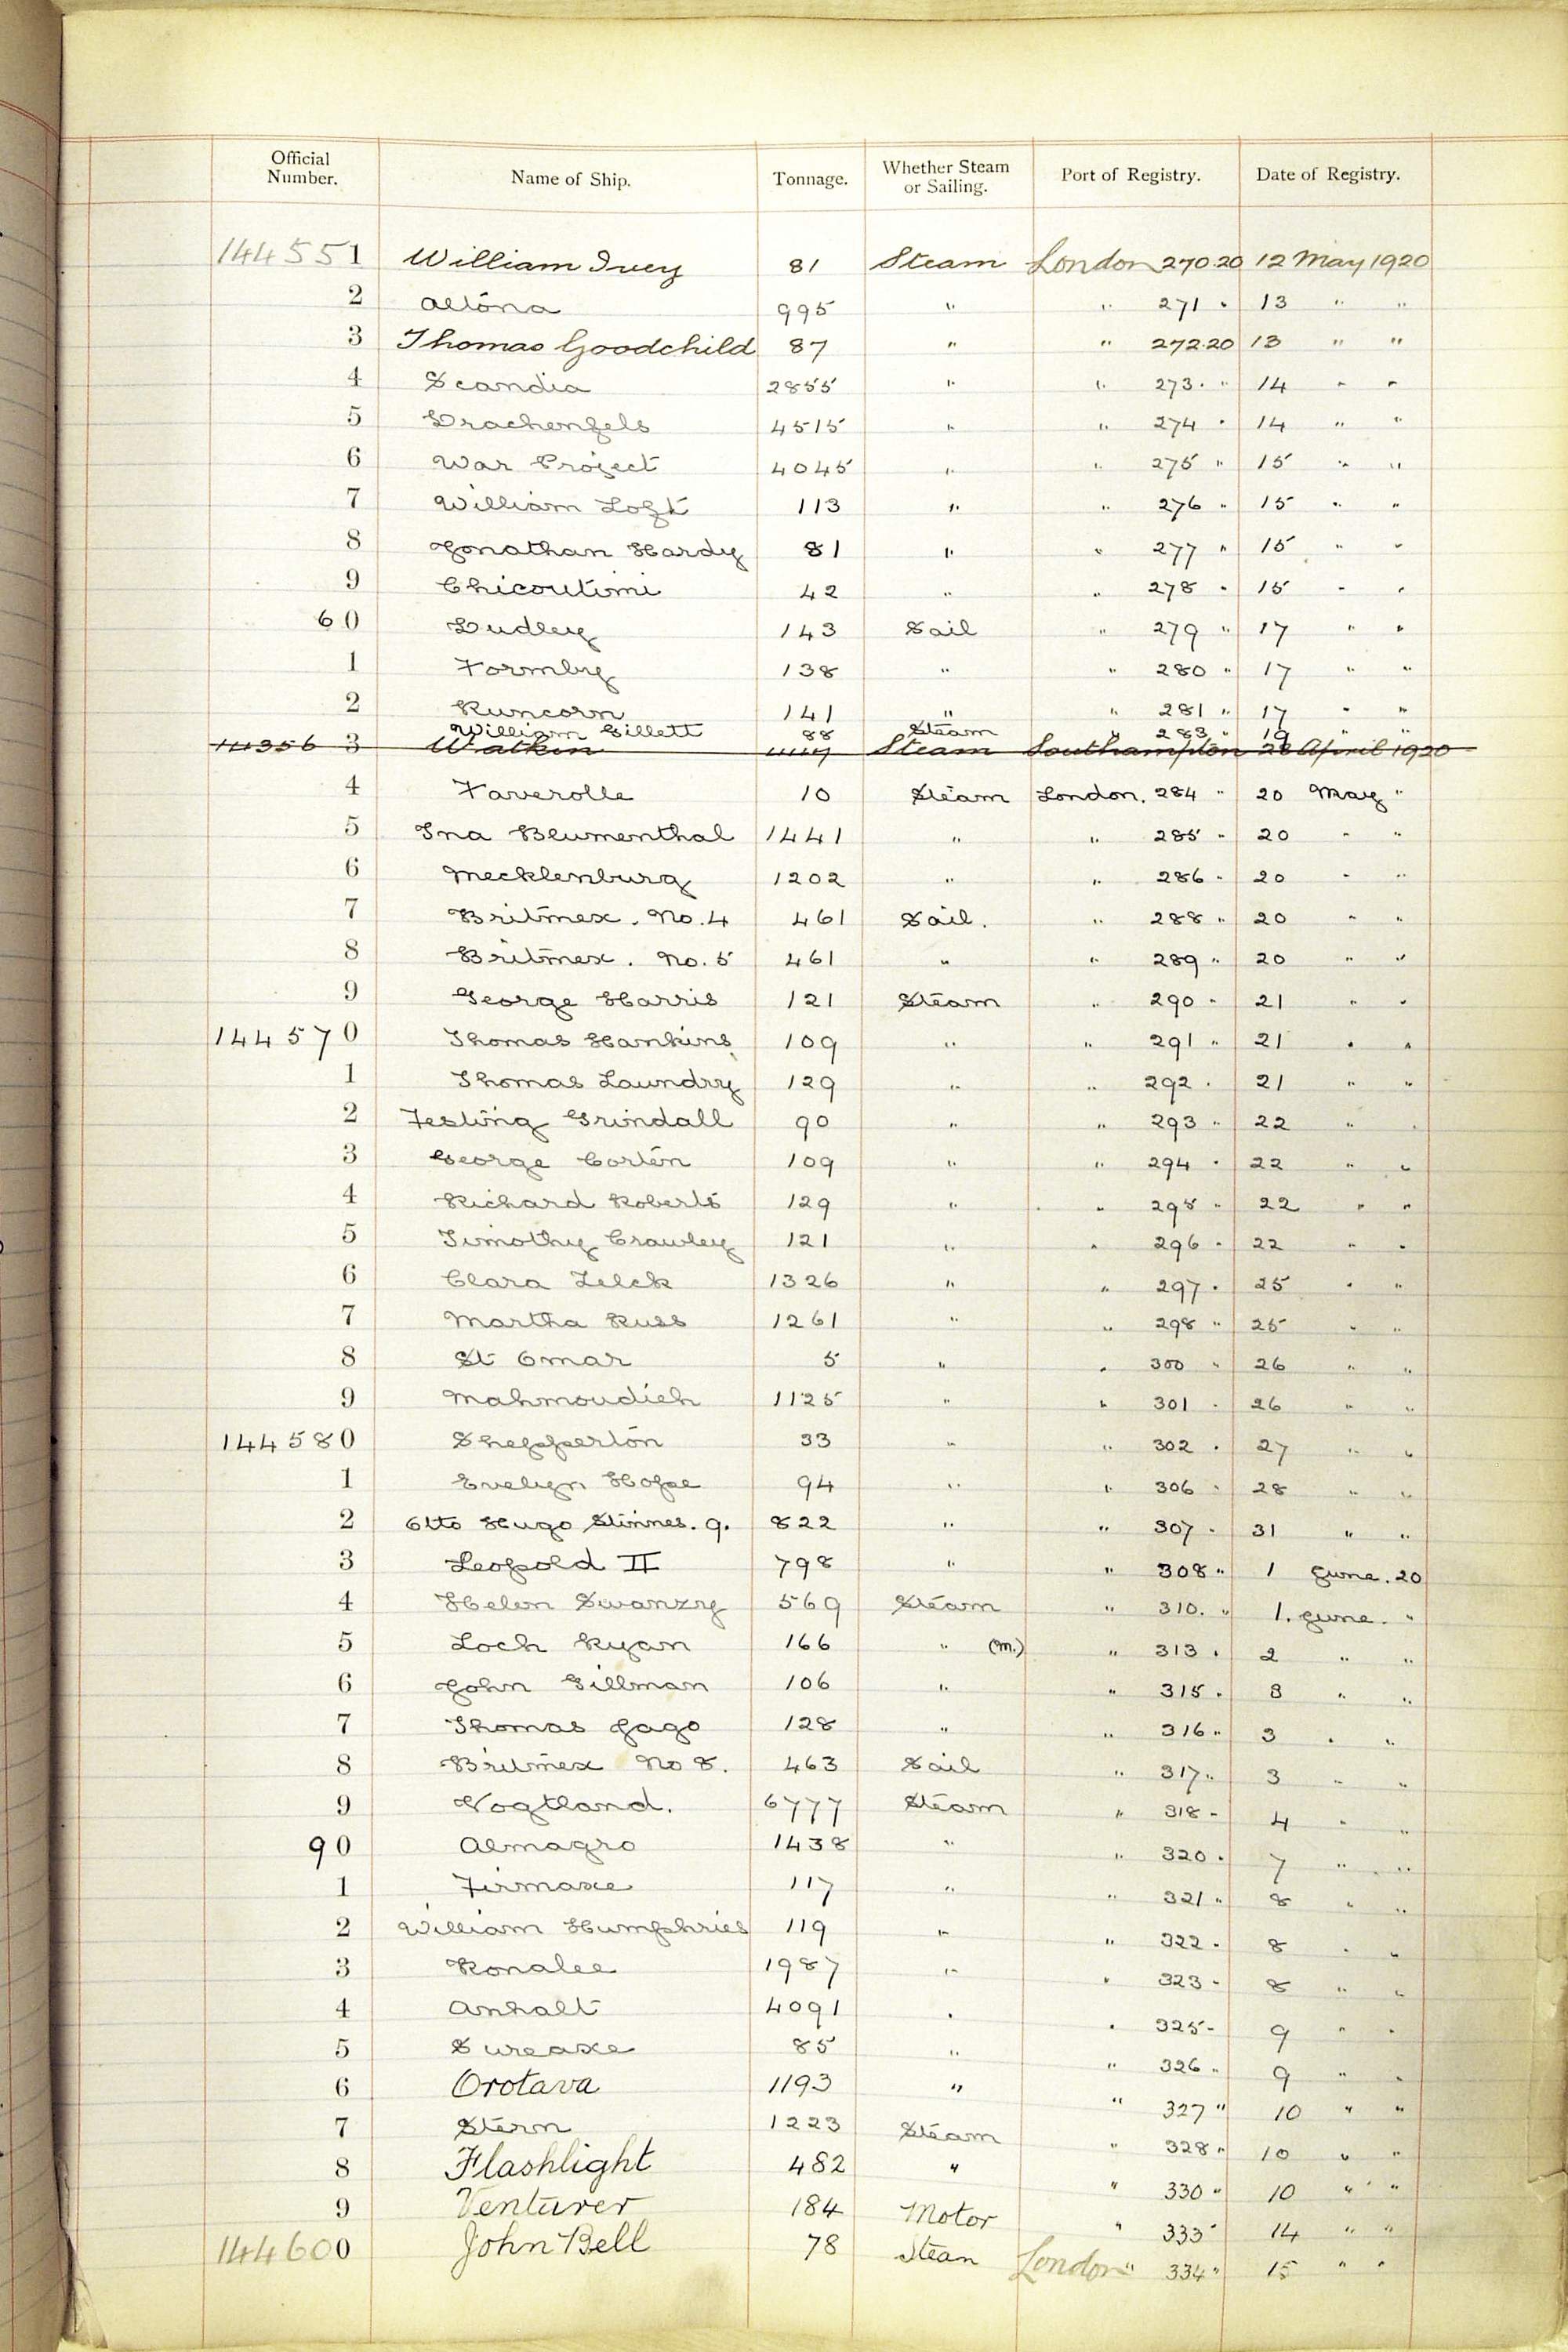 Official Number. Name of Ship. Tonnage. Whether Steam or Sailing. Port of Registry. Date of Registry.
144551 William Ivey 81 Steam London 270.20 12 May 1920
2 Altona 995 " " 271 " 13 " "
3 Thomas Goodchild 87 " " 272.20 13 " "
4 Scandia 2855 " " 273 " 14 " "
5 Drachenfels 4515 " " 274 " 14 " "
6 War Project 4045 " " 275 " 15 " "
7 William Loft 113 " " 276 " 15 " "
8 Jonathan Hardy 81 " " 277 " 15 " "
9 Chicoutimi 42 " " 278 " 15 " "
60 Dudley 143 Sail " 279 " 17 " "
1 Formby 138 " " 280 " 17 " "
2 Runcorn 141 " " 281 " 17 " "
William Gillett 88 Steam " 283 " 19 " "
14356 3 Watkin Steam Southampton 28 April 1920
4 Faverolle 10 Steam London. 284 " 20 May "
5 Ina Blumenthal 1441 " " 285 " 20 " "
6 Mecklenburg 1202 " " 286 " 20 " "
7 Britmex. No. 4 461 Sail. " 288 " 20 " "
8 Britmex. No. 5 461 " " 289 " 20 " "
9 George Harris 121 Steam " 290 " 21 " "
144570 Thomas Hankins 109 " " 291 " 21 " "
1 Thomas Laundry 129 " " 292 " 21 " "
2 Festing Grindall 90 " " 293 " 22 " "
3 George Corten 109 " " 294 " 22 " "
4 Richard Roberts 129 " " 295 " 22 " "
5 Timothy Crawley 121 " " 296 " 22 " "
6 Clara Zelck 1326 " " 297 " 25 " "
7 Martha Russ 1261 " " 298 " 25 " "
8 St Omar 5 " " 300 " 26 " "
9 Mahmoudieh 1125 " " 301 " 26 " "
144580 Shepperton 33 " " 302 " 27 " "
1 Evelyn Hope 94 " " 306 " 28 " "
2 Otto Hugo Stinnes. 9. 822 " " 307 " 31 " "
3 Leopold II 798 " " 308 " 1 June. 20
4 Helen Swanzy 569 Steam " 310. " 1. June. "
5 Loch Ryan 166 " (m.) " 313 " 2 " "
6 John Gillman 106 " " 315 " 3 " "
7 Thomas Jago 128 " " 316 " 3 " "
8 Britmex No 8. 463 Sail " 317 " 3 " "
9 Vogtland. 6777 Steam " 318 " 4 " "
90 Almagro 1438 " " 320 " 7 " "
1 Firmaxe 117 " " 321 " 8 " "
2 William Humphries 119 " " 322 " 8 " "
3 Ronalee 1987 " " 323 " 8 " "
4 Anhalt 4091 " " 325 " 9 " "
5 Sureaxe 85 " " 326 " 9 " "
6 Orotava 1193 " " 327 " 10 " "
7 Stern 1223 Steam " 328 " 10 " "
8 Flashlight 482 " " 330 " 10 " "
9 Venturer 184 Motor " 333 " 14 " "
144600 John Bell 78 Steam London " 334 " 15 " "